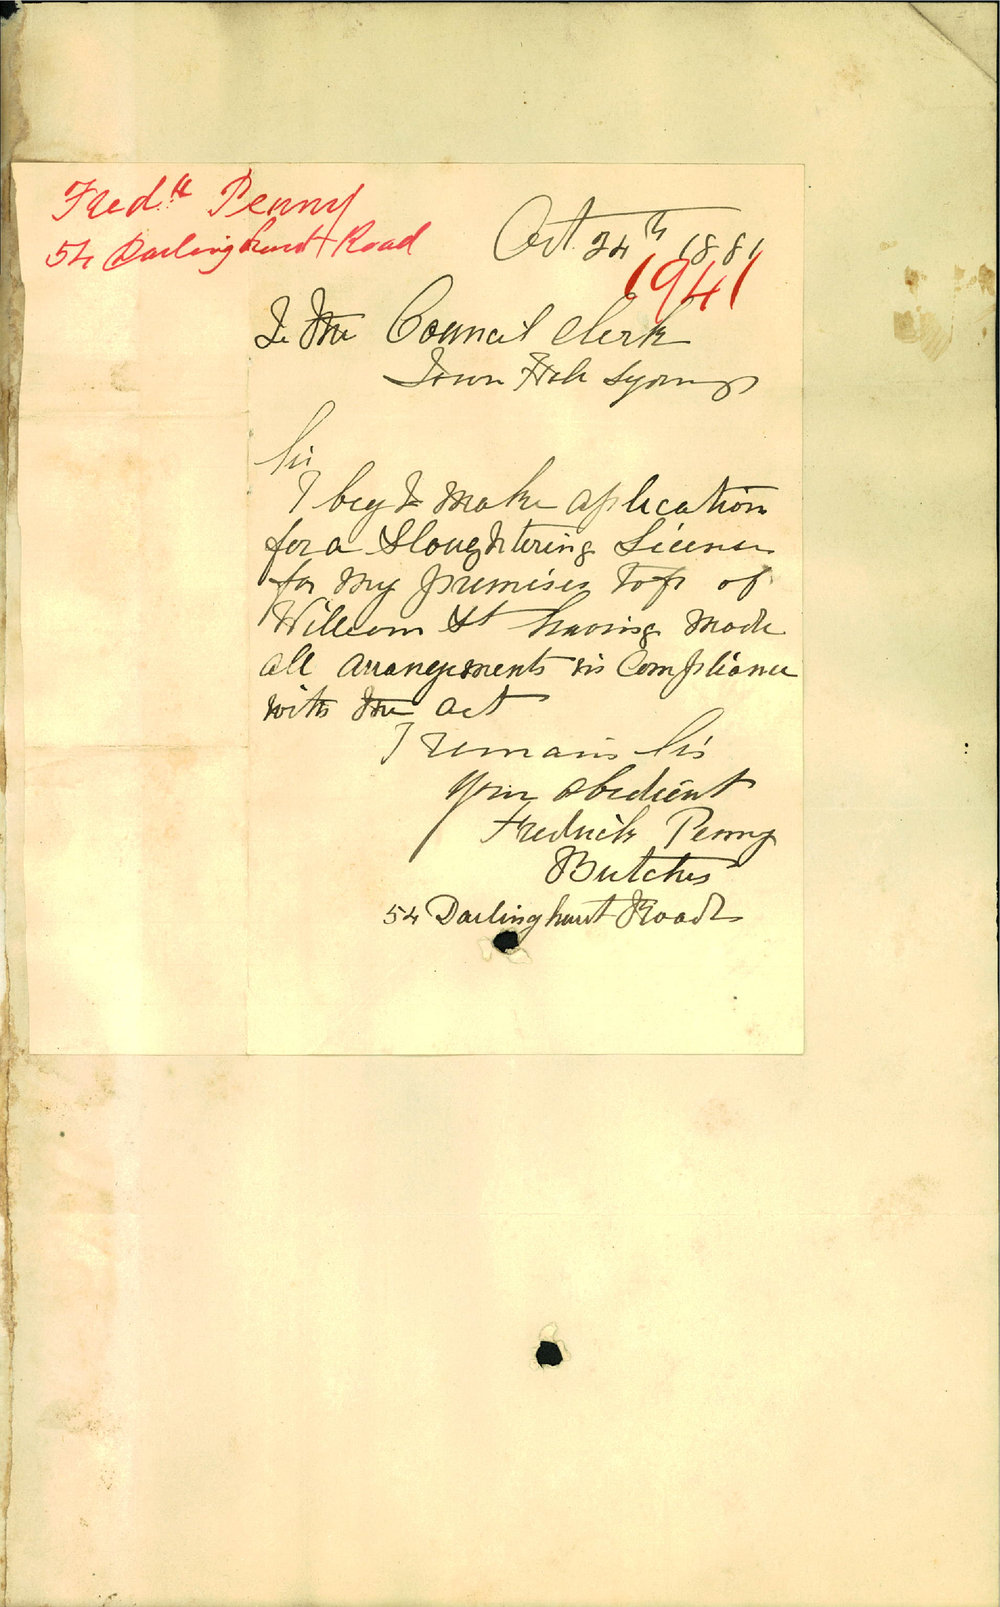 Fred.k Penny
54 Darlinghurst Road
Oct 24th 1881
1941
To the Council Clerk
Town Hall Sydney
Sir
I beg to make aplication
for a Sloughtering License
for my premises top of
William St having made
all arrangements in Compliance
with the act
I remain Sir
Your obedient
Fredrick Penny
Butcher
54 Darlinghurst Road